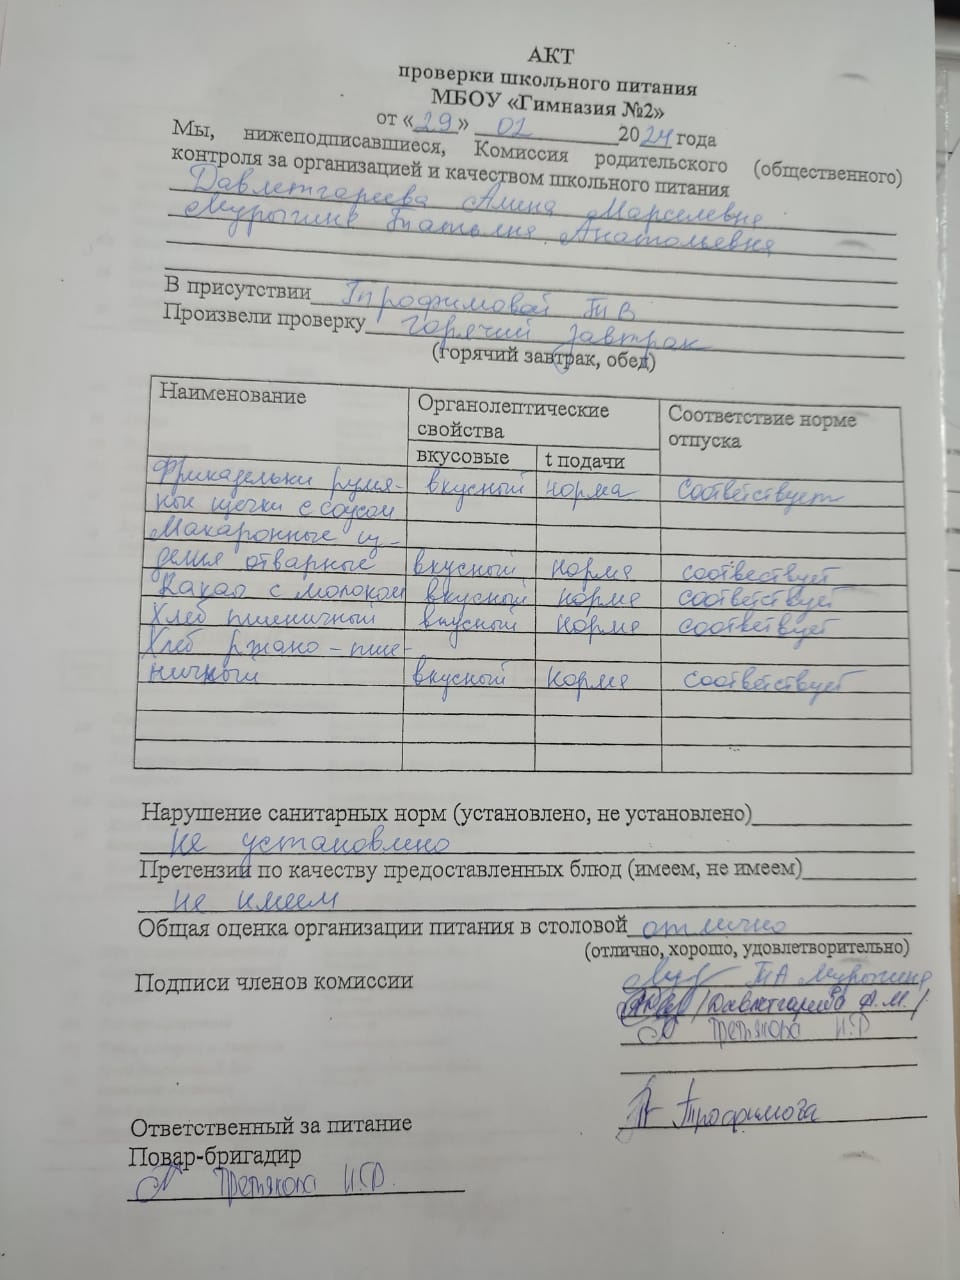 АКТ
проверки школьного питания
МБОУ «Гимназия №2»
от «29» 02 2024 года
Мы, нижеподписавшиеся, Комиссия родительского (общественного)
контроля за организацией и качеством школьного питания
Давлетгареева Алина Марселевна
Мурыгина Татьяна Анатольевна
В присутствии Трофимовой Т В
Произвели проверку горячий завтрак
(горячий завтрак, обед)
Наименование Органолептические свойства Соответствие норме отпуска
вкусовые t подачи
Фрикадельки румя- вкусный норма соответствует
ные щечки с соусом
Макаронные из-
делия отварные вкусный норма соотвествует
Какао с молоком вкусный норма соответствует
Хлеб пшеничный вкусный норма соответствует
Хлеб ржано-пше-
ничный вкусный норма соответствует
Нарушение санитарных норм (установлено, не установлено)
не установлено
Претензии по качеству предоставленных блюд (имеем, не имеем)
не имеем
Общая оценка организации питания в столовой отлично
(отлично, хорошо, удовлетворительно)
Подписи членов комиссии ТА Мурыгина
/Давлетгареева А.М./
Третьякова И.Ф
Ответственный за питание Трофимова
Повар-бригадир
Третьякова И.Ф.